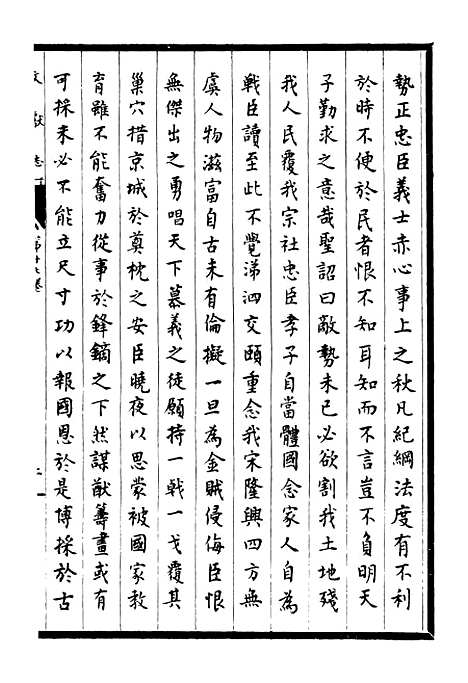 勢正忠臣義士赤心事上之秋凡紀綱法度有不利
於時不便於民者恨不知耳知而不言豈不負明天
子勤求之意哉聖詔曰敵勢未已必欲割我土地殘
我人民覆我宗社忠臣孝子自當體國念家人自為
戰臣讀至此不覺涕泗交頤重念我宋隆興四方無
虞人物滋富自古未有倫擬一旦為金賊侵侮臣恨
無傑出之勇唱天下慕義之徒願持一戟一戈覆其
巢穴措京城於奠枕之安臣曉夜以思蒙被國家教
育雖不能奮力從事於鋒鏑之下然謀猷籌畫或有
可採未必不能立尺寸功以報國恩於是博採於古